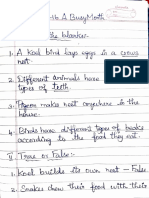 -16 A Busy Month
the blanks:-
1. A Koel bird lays eggs in a crows
nest.
2. Different animals have
types of teeth.
3. Tigers make nest anywhere in the
house.
4. Birds have different types of beaks
according to the food they eat.
II True or False:-
1. Koel builds its own nest - False
2. Snakes chew their food with their